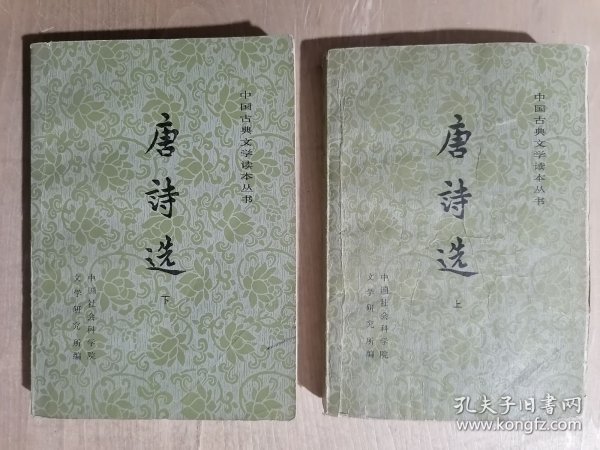 中国古典文学读本丛书
唐詩选
下
中国社会科学院
文学研究所编
中国古典文学读本丛书
唐詩选
上
中国社会科学院
文学研究所编
孔夫子旧書网
www.kongfz.com